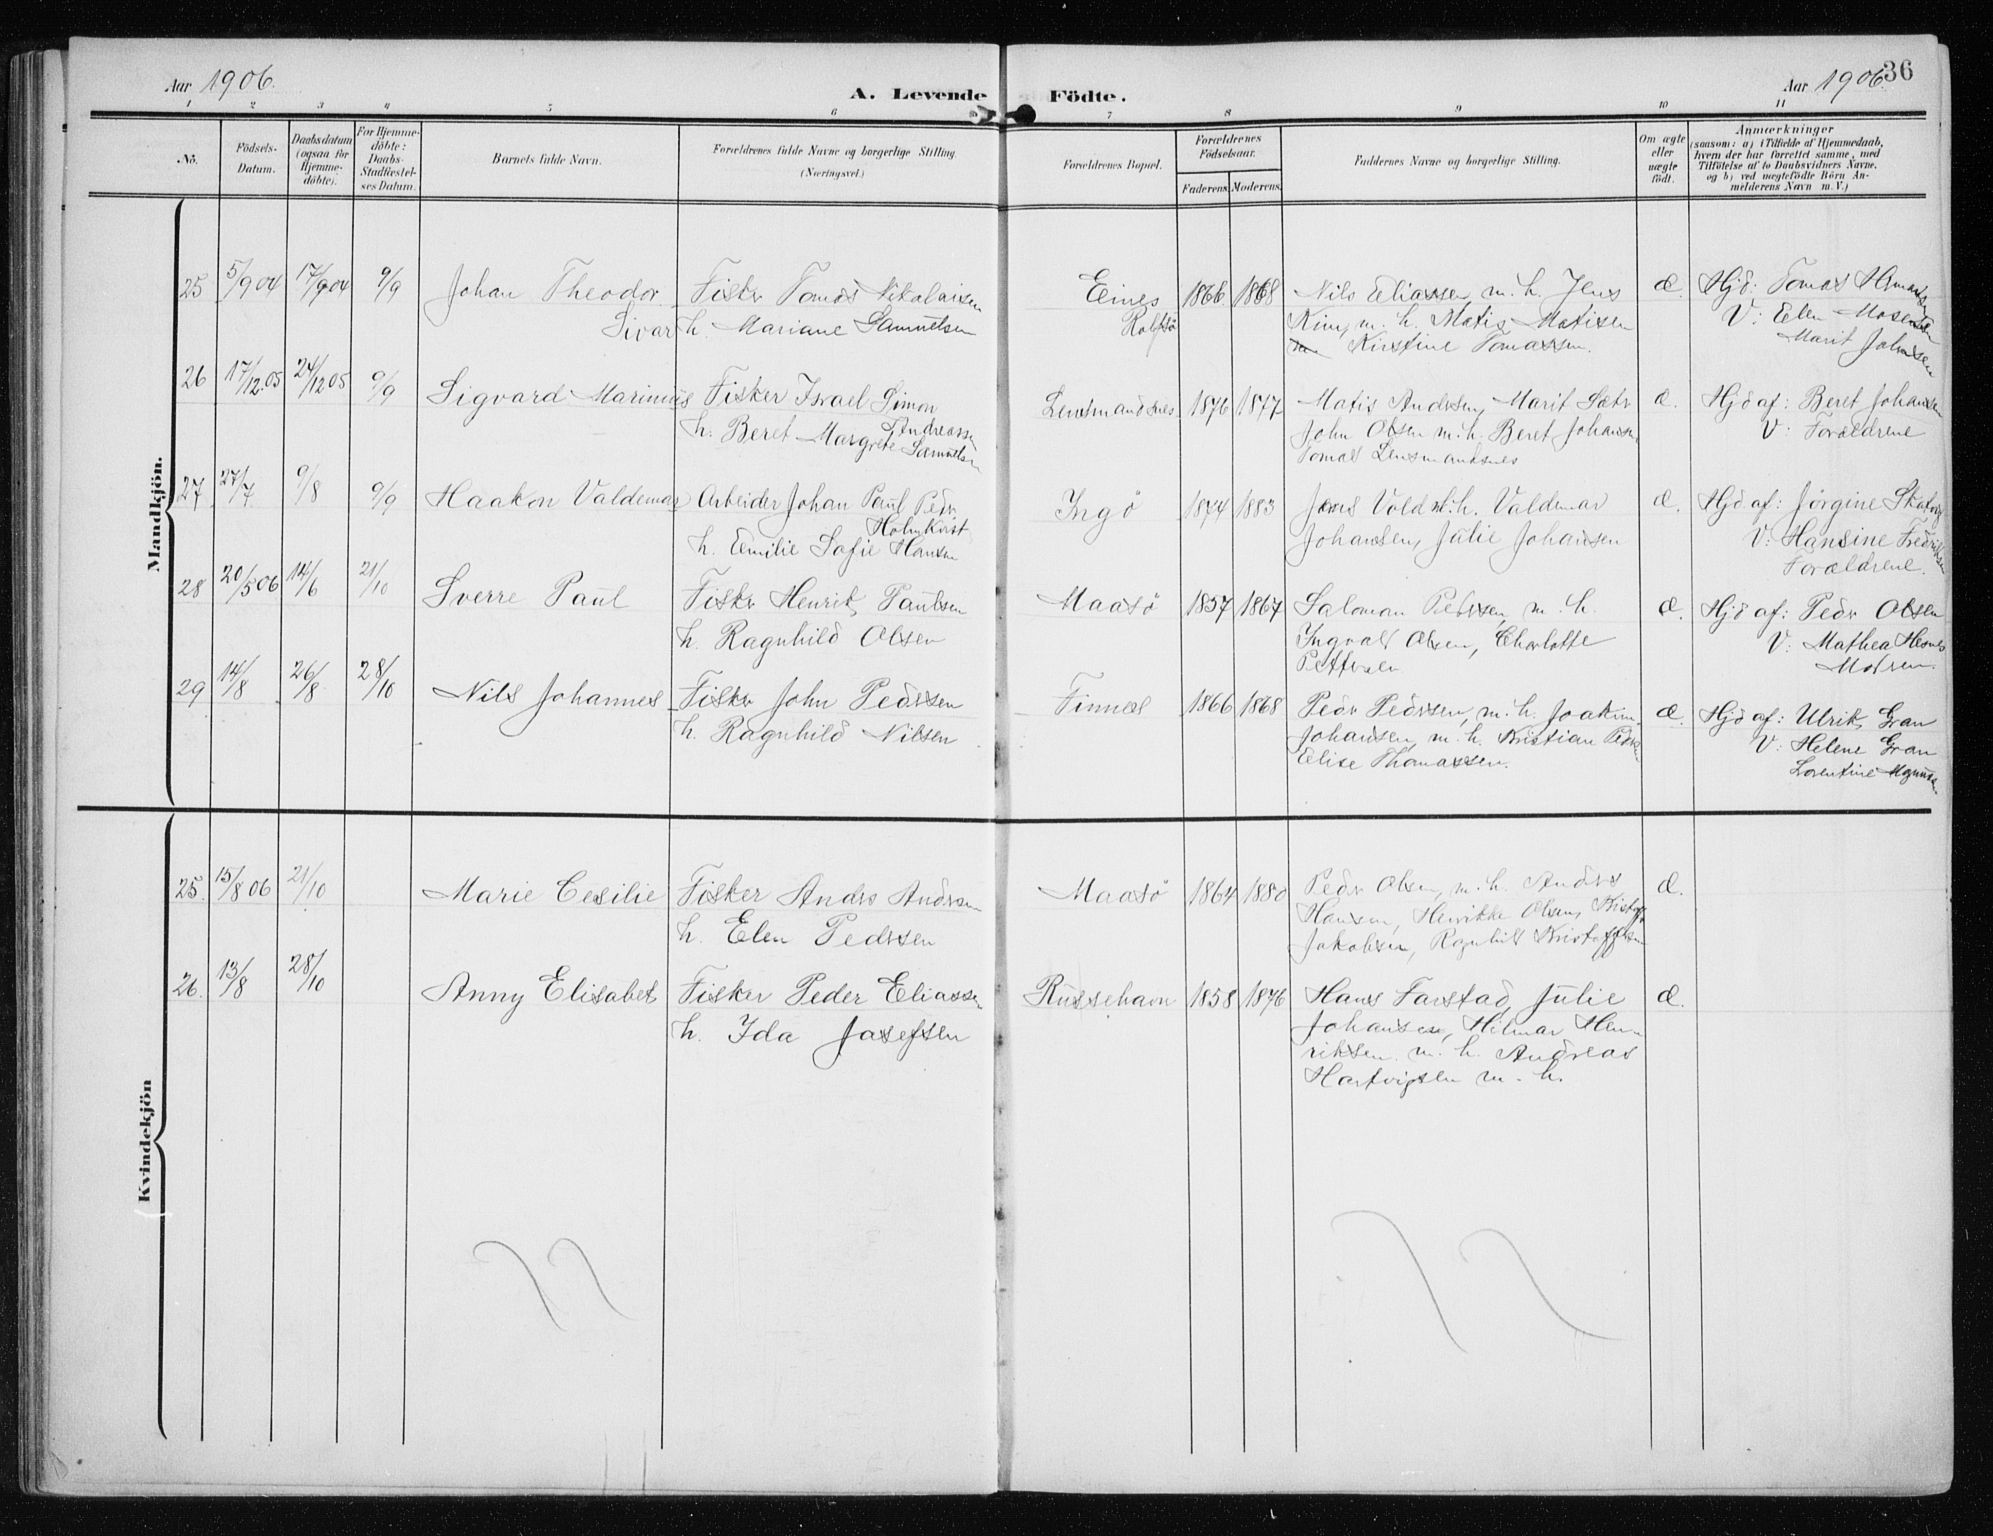 Aar 1906.
A. Levende Födte.
Aar 1906.
36
1 2 3 4 5 6 7 8 9 10 11
No.
Födsels-
Datum.
Daabsdatum
(ogsaa for
Hjemme-
döbte).
For Hjemme-
döbte:
Daabs-
Stadfæstel-
ses Datum.
Barnets fulde Navn.
Forældrenes fulde Navne og borgerlige Stilling.
(Næringsvei.)
Forældrenes Bopæl.
Forældrenes
Födselsaar.
Faderens. Moderens.
Faddernes Navne og borgerlige Stilling.
Om ægte
eller
uægte
födt.
Anmærkninger
(saasom: a) i Tilfælde af Hjemmedaab,
hvem der har forrettet samme, med
Tilföielse af to Daabsvidners Navne,
og b) ved uægtefödte Börn An-
melderens Navn m. V.)
Mandkjön.
25 5/9 04 17/9 04 9/9 Johan Theodor Fisker Tomas Nikolaisen Eines 1866 1868 Nils Eliassen, m. h. Jens æ. Hjd: Tomas
Sivar h. Mariane Samuelsen Rolfsö m. h. Matis Matisen V: Elen
Kirstine Tomassen. Marit Johnsen
26 17/12 05 24/12 05 9/9 Sigvard Marinius Fisker Israel Simon Lensmandsnes 1876 1877 Matis Andrsen, Marit æ. Hjd af: Beret Johansen
Andreassen
h. Beret Margrete Samuelsen John Olsen m. h. Beret Johansen V: Forældrene
Tomas Lensmandsnes
27 27/7 9/8 9/9 Haakon Valdemar Arbeider Johan Paul Pedr Ingö 1874 1883 Jens Vold m. h. Valdemar æ. Hjd af: Jörgine
Holmkvist
h. Emilie Sofie Hansen Johansen, Julie Johansen V: Hansine Fredriksen
Forældrene.
28 20/5 06 14/6 21/10 Sverre Paul Fiskr Henrik Paulsen Maasö 1857 1867 Saloman Pedrsen, m. h. æ. Hjd af: Pedr Olsen
h. Ragnhild Olsen Ingvald Olsen, Charlotte V: Mathea
29 14/8 26/8 28/10 Nils Johannes Fiskr John Pedrsen Finnes 1866 1868 Pedr Pedrsen, m. h. Joakim æ. Hjd af: Ulrik Gran
h. Ragnhild Nilsen Johansen, m. h. Kristian V: Helene Gran
Elise Thomassen. Lorentine
Kvindekjön
25. 15/8 06 21/10 Marie Cesilie Fisker Andrs Andrsen Maasö 1864 1880 Pedr Olsen, m. h. Andrs æ.
h. Elen Pedrsen Hansen, Henrikke Olsen,
Jakobsen, Ragnhild Kristoffersen
26. 13/8 28/10 Anny Elisabet Fisker Peder Eliassen Russehavn 1858 1876 Hans Farstad, Julie æ.
h. Ida Josefsen Johansen, Hilmar Hen-
riksen m. h. Andreas
Hartvigsen m. h.